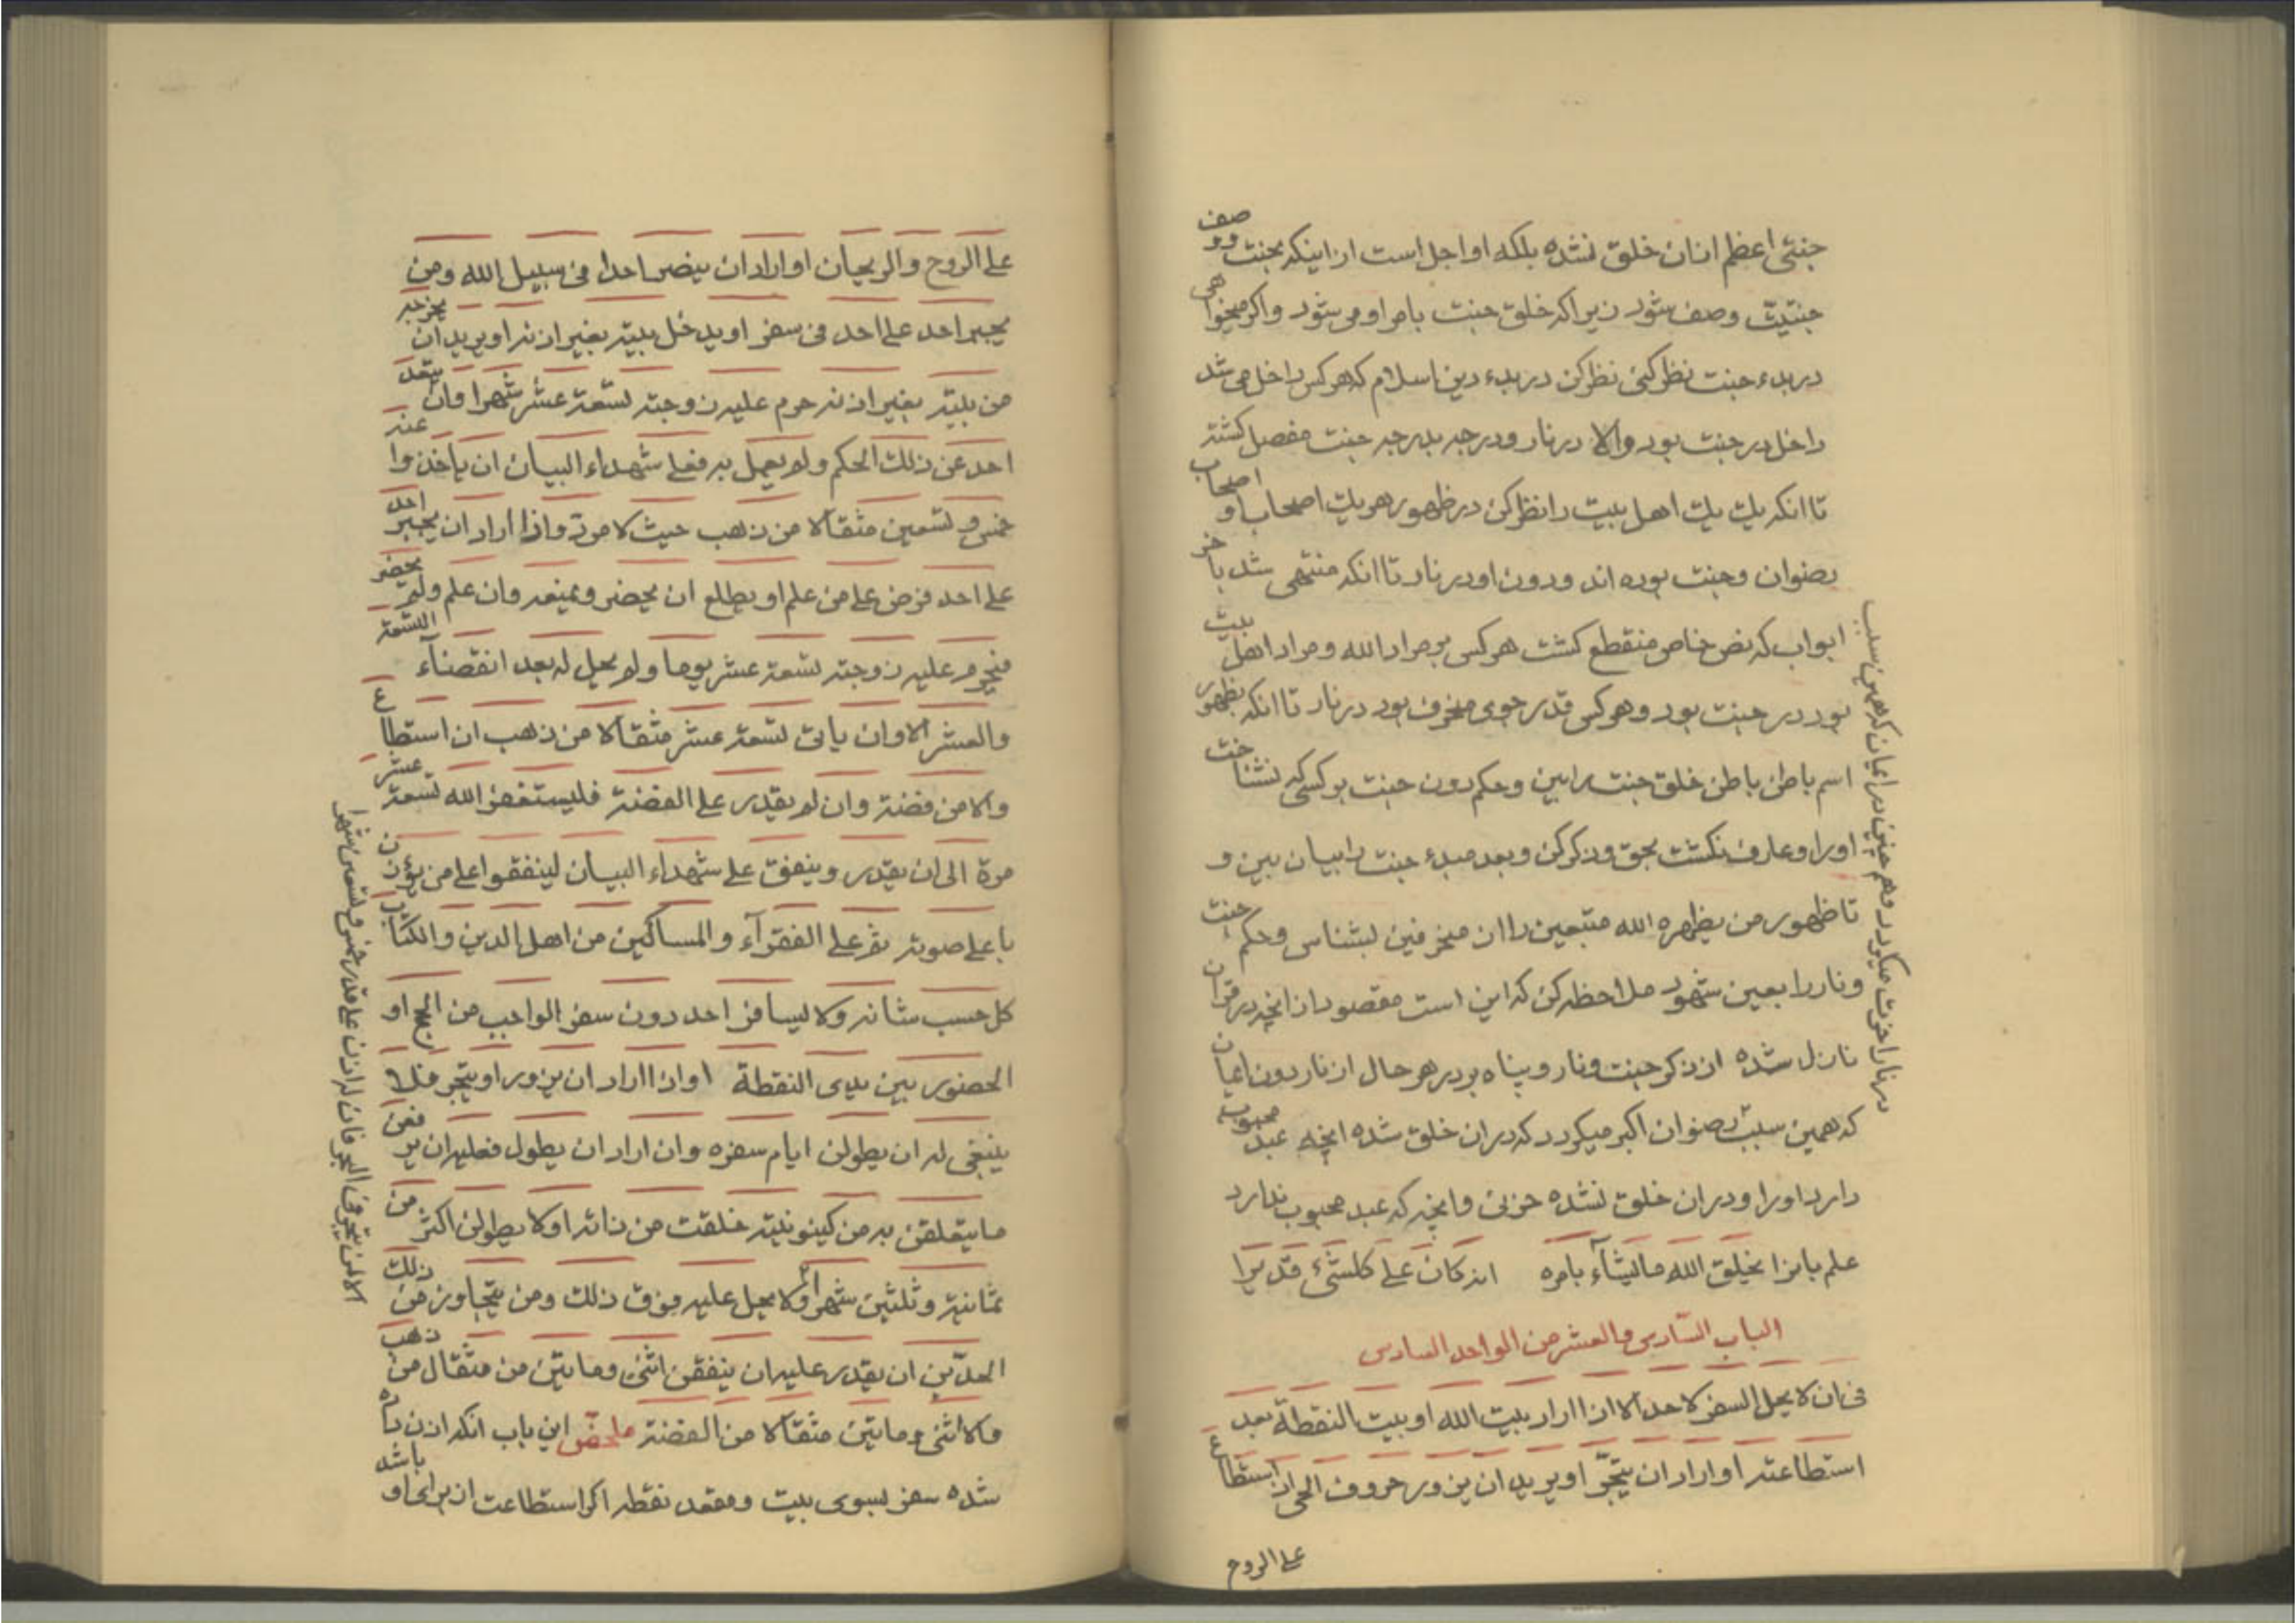 جنتی اعظم از ان خلق نشده بلکه او اجل است از اینکه بجنت و وصف
جنتیت وصف شود زیرا که خلق جنت بامر او می شود و اکر میخواهی
در بدء جنت نظر کنی نظر کن در بدء دین اسلام که هر کس داخل می شد
داخل در جنت بود والا در نار و درجه بدرجه جنت مفصل کشته
تا انکه یک یک اهل بیت را نظر کن در ظهور هر یک اصحاب او اصحاب
رضوان و جنت بوده اند و دون او در نار تا انکه منتهی شد باخر
ابواب که نص خاص منقطع کشت هر کس بر مراد الله و مراد اهل بیت
بود در جنت بود و هر کس قدر جوی منحرف بود در نار تا انکه بظهور
اسم باطن باطن خلق جنت را بین و حکم دون جنت بر کسی که نشناخت
او را و عارف نکشت بحق و ذکر کن و بعد مبدء جنت را بیان بین و
تا ظهور من یظهره الله متبعین را از منحرفین بشناس و حکم جنت
و نار را بعین شهود ملاحظه کن که این است مقصود از انچه در قران
نازل شده از ذکر جنت و نار و پناه بر در هر حال از نار دون ایمان
که همین سبب رضوان اکبر میکردد که در ان خلق شده انچه عبد محبوب
دارد او را و در ان خلق نشده حزنی و انچه که عبد محبوب ندارد
علم بانرا یخلق الله ما یشآء بامره انه کان علی کلشیء قدیرا
الباب السادس والعشر من الواحد السادس
فی ان لا یحل السفر لاحد الا اذا اراد بیت الله او بیت النقطة بعد
استطاعته او اراد ان یتجر او یرید ان یزور حروف الحی اذ استطاع
علی الروح
علی الروح والریحان او اراد ان ینصر احدا فی سبیل الله ومن
یجبر احد علی احد فی سفر او یدخل بیته بغیر اذنه او یرید ان یخرجه
من بیته بغیر اذنه حرم علیه زوجته تسعة عشر شهرا وان یتعد
احد عن ذلک الحکم ولم یعمل به فعلی شهداء البیان ان یاخذوا عنه
خمس و تسعین مثقالا من ذهب حیث لا مرد واذا اراد ان یجبر احد
علی احد فرض علی من علم او یطلع ان یحضر و یمنعه وان علم ولم یحضر
فیحرم علیه زوجته تسعة عشر یوما ولم یحل له بعد انقضآء التسعة
والعشر الا وان یاتی تسعة عشر مثقالا من ذهب ان استطاع
والا من فضة وان لم یقدر علی الفضة فلیستغفر الله تسعة عشر
مرة الی ان یقدر و ینفق علی شهداء البیان لینفقوا علی من یؤذن
باعلی صوته ثم علی الفقرآء والمساکین من اهل الدین والکتاب
کل حسب شانه ولا یسافر احد دون سفر الواجب من الحج او
الحضور بین یدی النقطة او اذا اراد ان یزور او یتجر فلا
ینبغی له ان یطولن ایام سفره وان اراد ان یطول فعلیه ان یرفعن
ما یتعلقن به من کینونیته خلقت من ذاته او لا یطولن اکثر من
ثمانیة و ثلثین شهرا ولا یحل علیه فوق ذلک ومن یتجاوز من ذلک
الحدین ان یقدر علیه ان ینفقن اثنی و مایتین من مثقال من ذهب
والا اثنی و مایتین مثقالا من الفضة ملخص این باب انکه اذن داده
شده سفر بسوی بیت و مقعد نقطه اکر استطاعت از برای او باشد